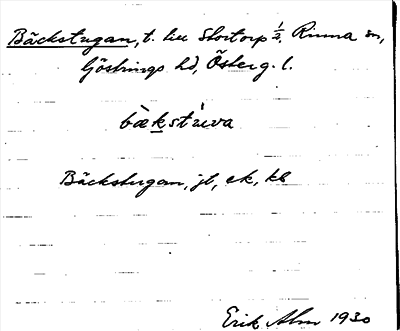 Bäckstugan, t. lill Stortorp 1/2, Rinna sn,
Göstrings hd, Österg. l.
bäkstuva
Bäckstugan, jt, ek, kb
Erik Alm 1930